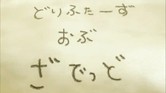 どりふたーす
おぶ
ざ でっど